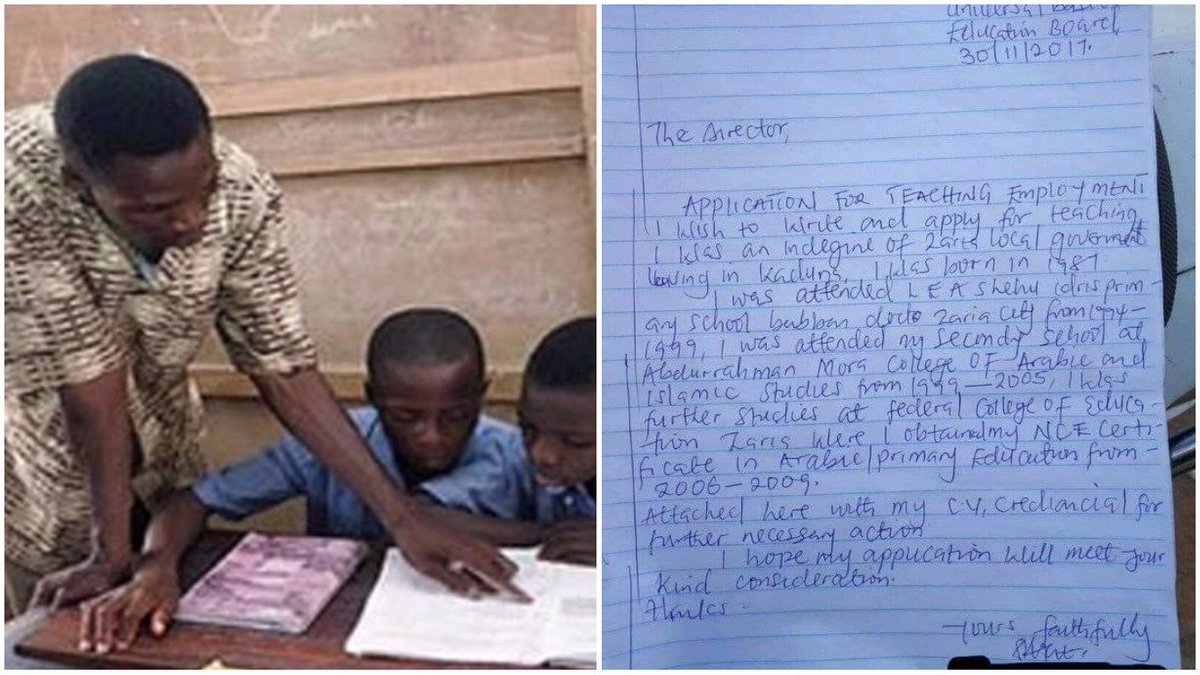 Universal Basic
Education Board,
30/11/2017.
The Director,
APPLICATION FOR TEACHING EMPLOYMENT
I wish to write and apply for teaching
I was an indegine of Zaria local goverment
leaving in Kaduna. I was born in 1987.
I was attended L E A Shehu idris prim-
ary school babban dodo Zaria city from 1994-
1999, I was attended my secondy school at
Abdurrahman Mora College OF Arabic and
islamic studies from 1999—2005, I was
further studies at federal College of Educa-
tion Zaria were I obtained my NCE certi-
ficate in Arabic/primary Education from-
2006-2009.
Attached here with my C.V, Crediancial for
further necessary action
I hope my application will meet your
kind consideration.
Thanks.
Yours faithfully